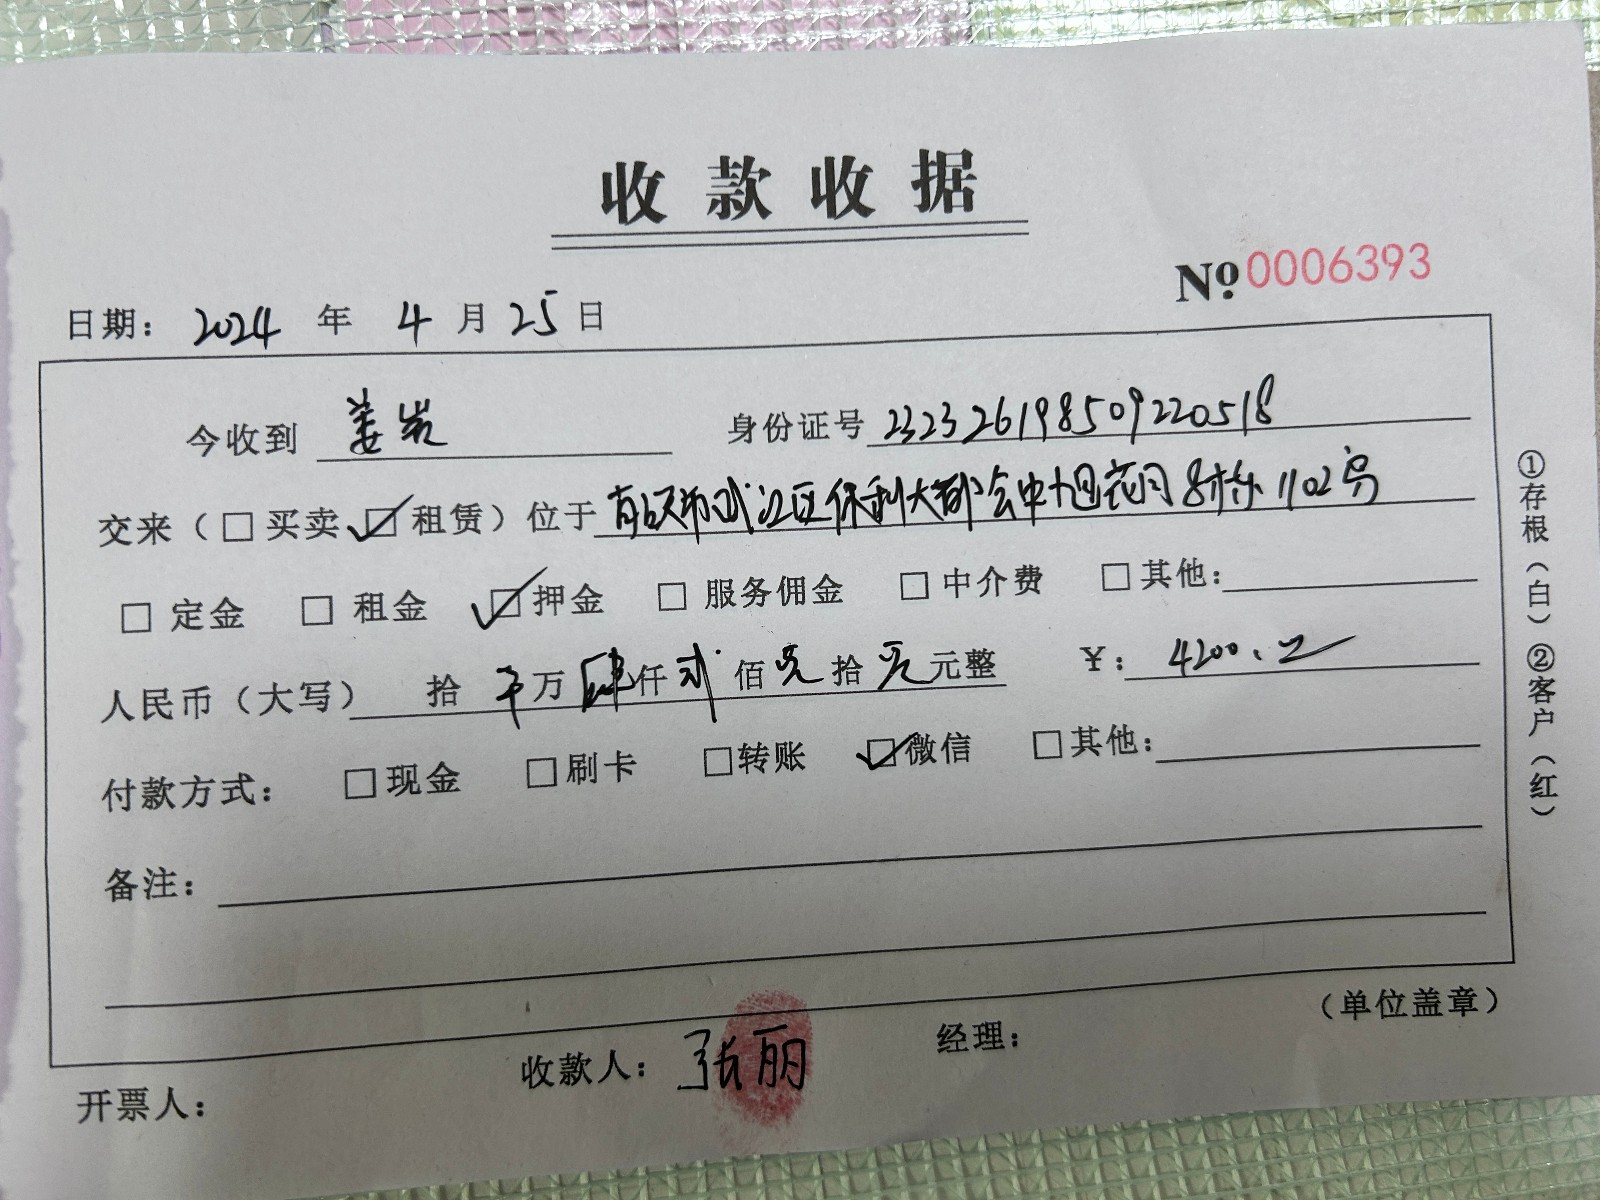 收款收据
No 0006393
日期： 2024 年 4 月 25 日
今收到 姜岩 身份证号 232326198509220518
交来（□买卖 ☑租赁）位于 韶关市武江区保利大都会中旭花园8栋1102号
□ 定金 □ 租金 ☑ 押金 □ 服务佣金 □ 中介费 □ 其他：
人民币（大写） 拾 万 肆仟 贰 佰 元 拾 元 元整 ￥： 4200.
付款方式： □现金 □刷卡 □转账 ☑微信 □其他：
备注：
（单位盖章）
开票人： 收款人： 张丽 经理：
①存根（白）②客户（红）